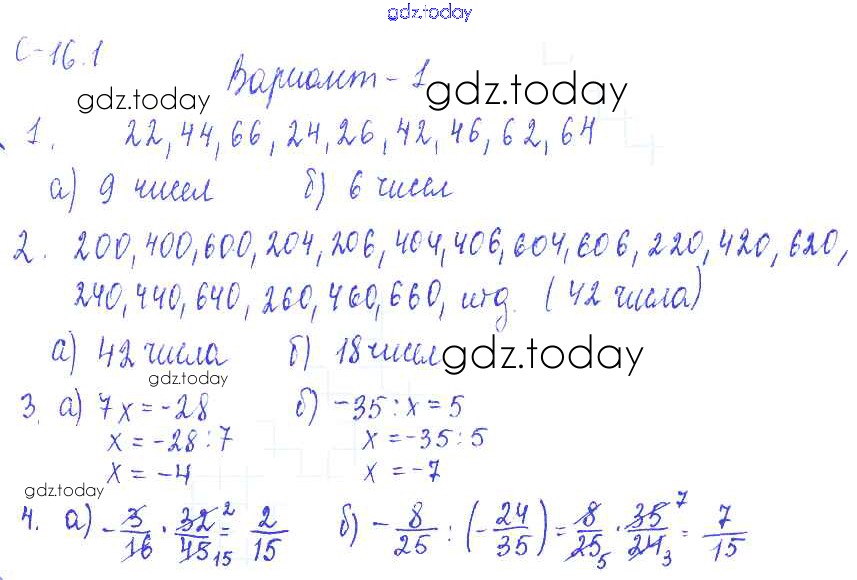 gdz.today
С-16.1
Вариант-1
gdz.today gdz.today
1. 22, 44, 66, 24, 26, 42, 46, 62, 64
а) 9 чисел б) 6 чисел
2. 200, 400, 600, 204, 206, 404, 406, 604, 606, 220, 420, 620,
240, 440, 640, 260, 460, 660, итд. (42 числа)
а) 42 числа б) 18 чисел gdz.today
gdz.today
3. а) 7x = -28 б) -35 : x = 5
x = -28 : 7 x = -35 : 5
x = -4 x = -7
gdz.today
4. а) -3/16 · 32/45 = 2/15 б) -8/25 : (-24/35) = 8/25 · 35/24 = 7/15